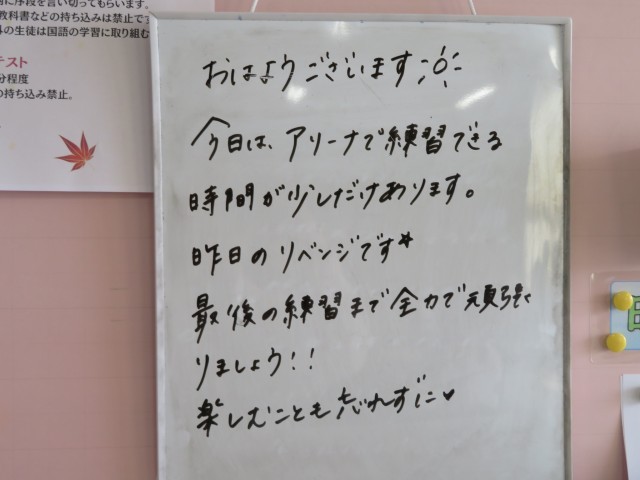 に序段を言い切ってもらいます。
教科書などの持ち込みは禁止です
の生徒は国語の学習に取り組む
テスト
分程度
の持ち込み禁止。
おはようございます
今日は、アリーナで練習できる
時間が少しだけあります。
昨日のリベンジです*
最後の練習まで全力で頑張
りましょう!!
楽しむことも忘れずに♥